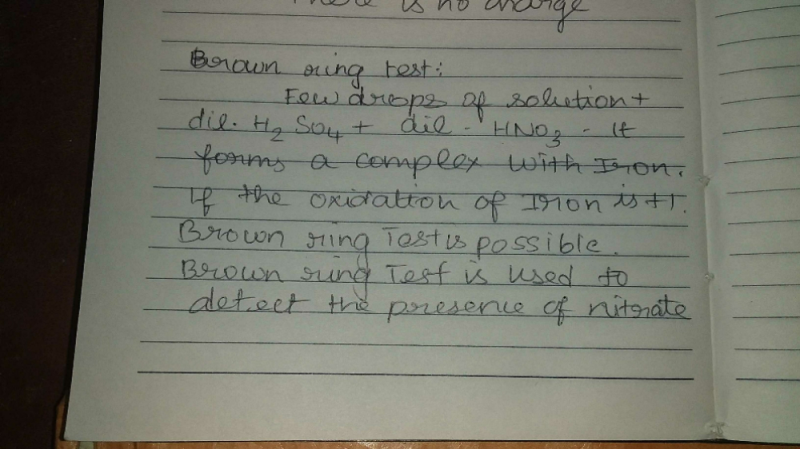 There is no charge
Brown ring test:
Few drops of solution +
dil. H2SO4 + dil - HNO3 - It
forms a complex with Iron.
If the oxidation of Iron is +1.
Brown ring Test is possible.
Brown ring Test is used to
detect the presence of nitrate